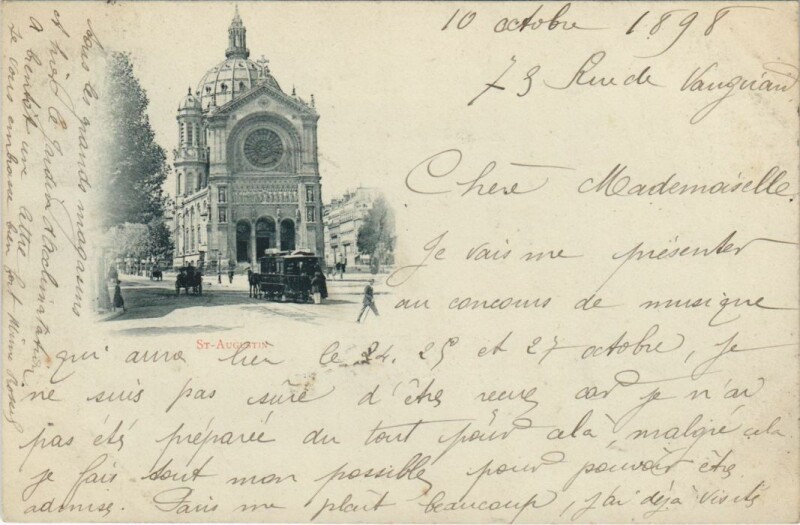 10 octobre 1898
73 Rue de Vaugirard
Chère Mademoiselle
Je vais me présenter
au concours de musique
ST-AUGUSTIN
qui aura lieu le 24. 25 et 27 octobre, je
ne suis pas sûre d'être reçue car je n'ai
pas été préparée du tout pour cela, malgré cela
je fais tout mon possible pour pouvoir être
admise. Paris me plaît beaucoup, j'ai déjà visité
tous les grands magasins
et hier le Jardin d'Acclimatation
A bientôt une lettre
Je vous embrasse bien fort